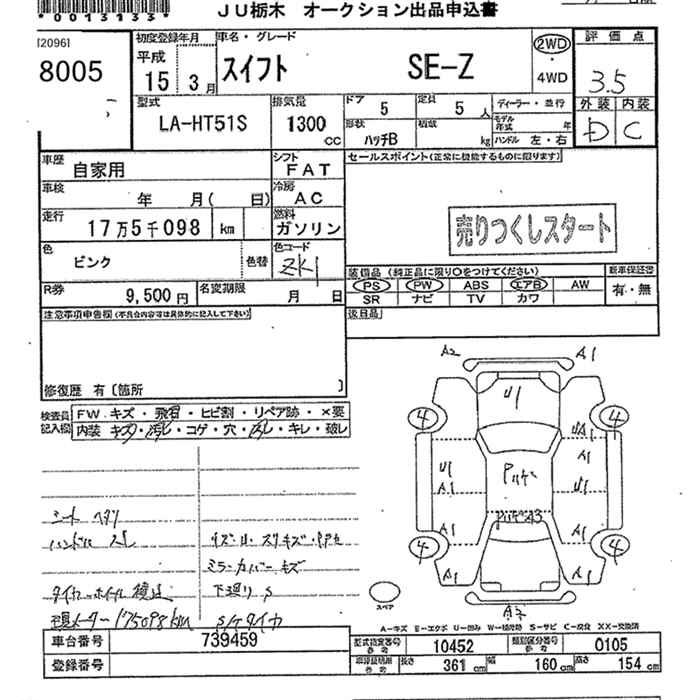 *0013133*
JU栃木 オークション出品申込書
[20961
8005
初度登録年月
平成
15 3月
車名・グレード
スイフト SE-Z
2WD
・
4WD
評価点
3.5
外装 内装
D C
型式
LA-HT51S
排気量
1300
cc
ドア 5
定員 5人
形状 ハッチB
積載 kg
ディーラー・並行
モデル年式 年
ハンドル 左・右
車歴 自家用
シフト FAT
車検 年 月( 日)
冷房 AC
走行 17万5千098 km
燃料 ガソリン
色 ピンク
色替
色コード ZK1
R券 9,500円
名変期限 月 日
セールスポイント(正常に機能するものに限ります)
売りつくしスタート
装備品(純正品に限り○をつけてください)
新車保証書
PS PW ABS エアB AW
SR ナビ TV カワ
有・無
後日品
注意事項申告欄(不具合内容等は具体的に記入して下さい)
修復歴 有〔箇所 〕
検査員記入欄
FW.キズ・飛石・ヒビ割・リペア跡・×要
内装 キズ・汚レ・コゲ・穴・スレ・キレ・破レ
シート ヘタリ
ハンドル スレ
キズ・U・スリキズ・
ミラーカバーキズ
タイヤーホイル
下廻り S
現メーター175098km
S/ケタイヤ
A2 A1
U1
4 4
UA1
A1
U1
A1
U1
A1 A1
4 4
A1 A1
A2
スペア
A-キズ E-エクボ U-凹み W-補修跡 S-サビ C-腐食 XX-交換済
車台番号 739459
登録番号
型式指定番号 参考 10452
類別区分番号 参考 0105
車検証明細 参考
長さ 361cm 幅 160cm 高さ 154cm